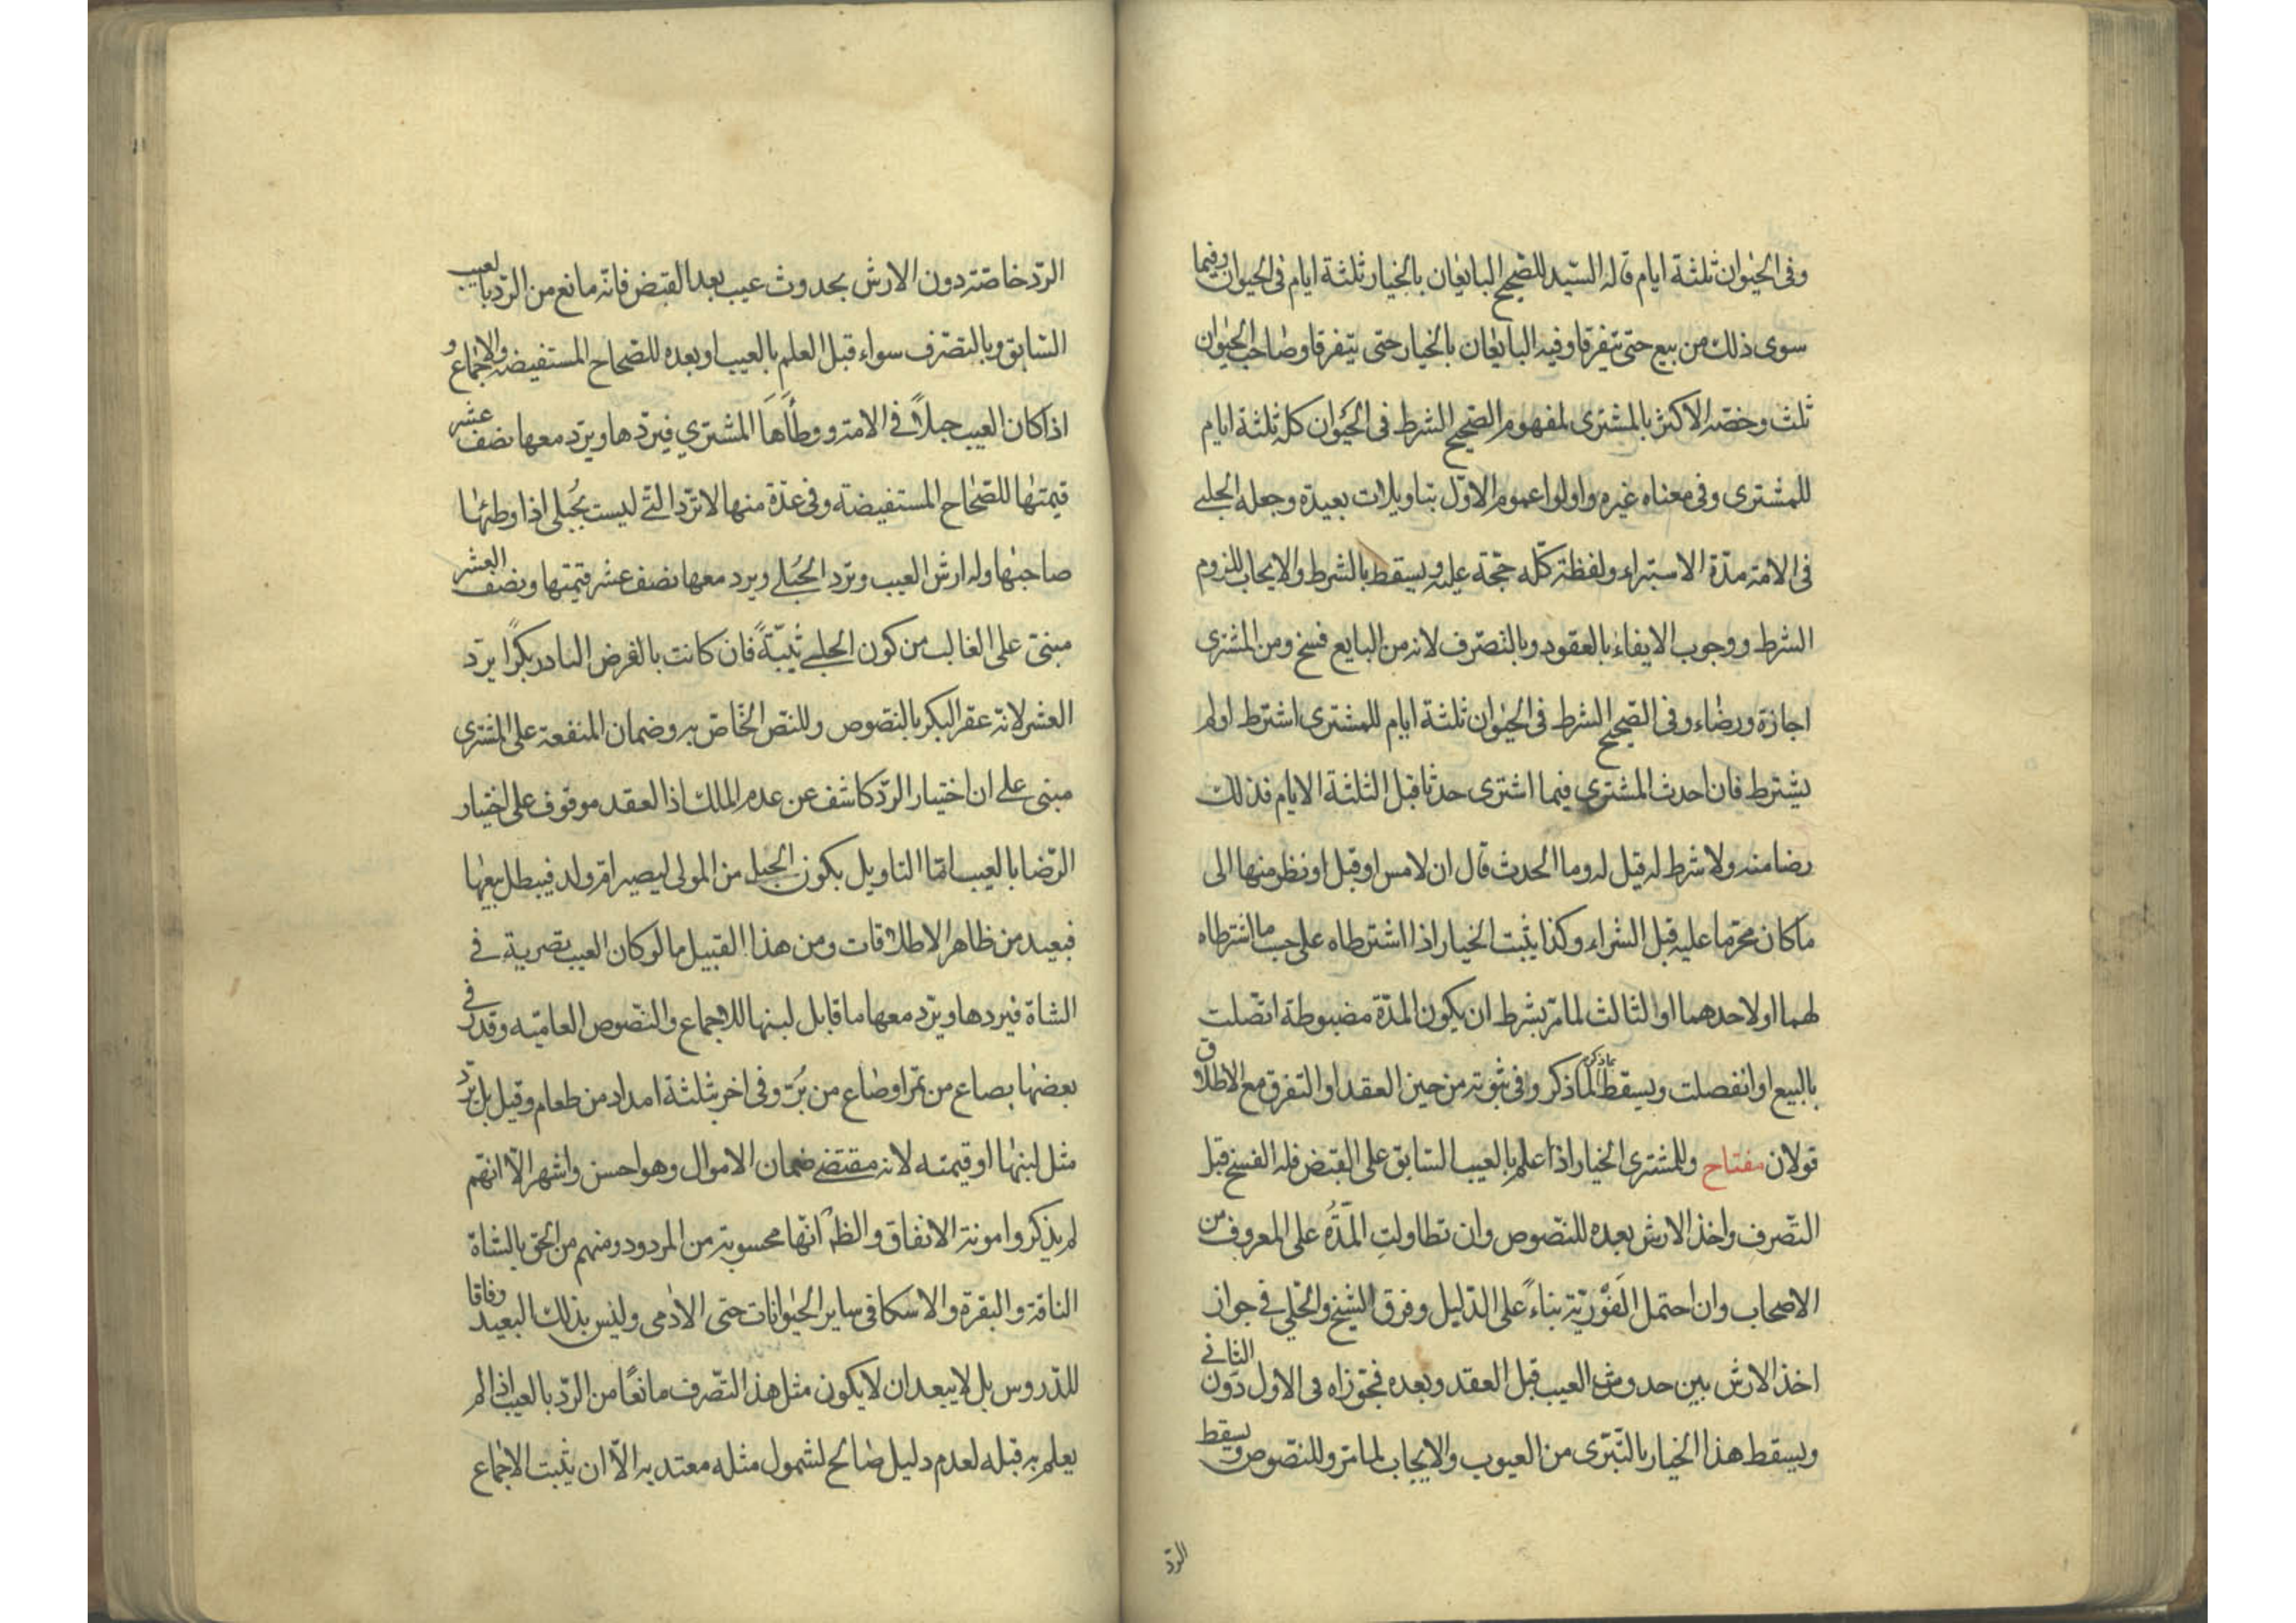 وفى الحيوان ثلثة ايام قاله السيد للصحيح البايعان بالخيار ثلثة ايام فى الحيوان وفيما
سوى ذلك من بيع حتى يتفرقا وفيه البايعان بالخيار حتى يتفرقا وصاحب الحيوان
ثلث وخصه الاكثر بالمشترى لمفهوم الصحيح الشرط فى الحيوان كله ثلثة ايام
للمشترى وفى معناه غيره واولوا عموم الاول بتاويلات بعيدة وجعله الحلبي
فى الامة مدة الاستبراء ولفظة كله حجة عليه ويسقط بالشرط والايجاب للزوم
الشرط ووجوب الايفاء بالعقود وبالتصرف لانه من البايع فسخ ومن المشترى
اجازة ورضاء وفى الصحيح الشرط فى الحيوان ثلثة ايام للمشترى اشترط اولم
يشترط فان احدث المشتري فيما اشترى حدثا قبل الثلثة الايام فذلك
رضا منه ولا شرط له قيل له وما الحدث قال ان لامس او قبل او نظر منها الى
ما كان محرما عليه قبل الشراء وكذا يثبت الخيار اذا اشترطاه على حسب ما اشترطاه
لهما او لاحدهما او لثالث لما مر بشرط ان يكون المدة مضبوطة اتصلت
بالبيع او انفصلت ويسقط بماذكر لما ذكر وفى ثبوته من حين العقد او التفرق مع الاطلاق
قولان مفتاح وللمشترى الخيار اذا علم بالعيب السابق على القبض فله الفسخ قبل
التصرف واخذ الارش بعده للنصوص وان تطاولت المدة على المعروف من
الاصحاب وان احتمل الفورية بناء على الدليل وفرق الشيخ والحلي في جواز
اخذ الارش بين حدوث العيب قبل العقد وبعده فجوزاه فى الاول دون الثاني
ويسقط هذا الخيار بالتبرى من العيوب والايجاب لما مر وللنصوص ويسقط
الرد
الرد خاصة دون الارش بحدوث عيب بعد القبض فانه مانع من الرد بالعيب
السابق وبالتصرف سواء قبل العلم بالعيب او بعده للصحاح المستفيضة والاجماع و
اذا كان العيب حبلاً في الامة ووطأها المشتري فيردها ويرد معها نصف عشر
قيمتها للصحاح المستفيضة وفى عدة منها لا ترد التي ليست بحبلى اذا وطئها
صاحبها وله ارش العيب وترد الحبلى ويرد معها نصف عشر قيمتها ونصف العشر
مبنى على الغالب من كون الحبلى ثيبة فان كانت بالفرض النادر بكرا يرد
العشر لانه عقر البكر بالنصوص وللنص الخاص به وضمان المنفعة على المشترى
مبنى على ان اختيار الرد كاشف عن عدم الملك اذ العقد موقوف على اختيار
الرضا بالعيب اما التاويل بكون الحبل من المولى ليصير ام ولد فيبطل بيعها
فبعيد من ظاهر الاطلاقات ومن هذا القبيل ما لو كان العيب تصرية في
الشاة فيردها ويرد معها ما قابل لبنها للاجماع والنصوص العامية وقدر في
بعضها بصاع من تمر او صاع من بر وفى اخر بثلثة امداد من طعام وقيل بل يرد
مثل لبنها او قيمته لانه مقتضى ضمان الاموال وهو احسن واشهر الا انهم
لم يذكروا مونة الانفاق والظ انها محسوبة من المردود ومنهم من الحق بالشاة
الناقة والبقرة والاسكافى ساير الحيوانات حتى الادمى وليس بذلك البعيد وفاقا
للدروس بل لا يبعد ان لا يكون مثل هذا التصرف مانعا من الرد بالعيب اذا لم
يعلم به قبله لعدم دليل صالح لشمول مثله معتد به الا ان يثبت الاجماع